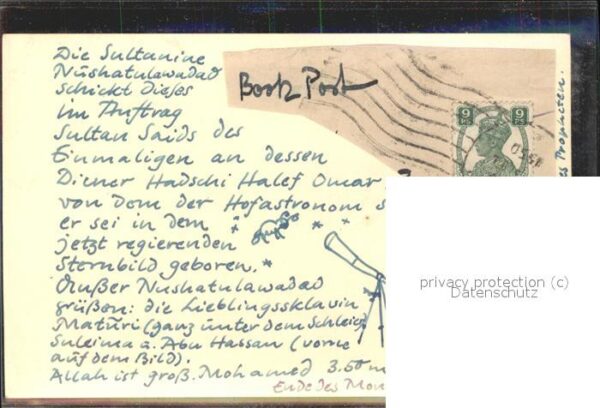 Die Sultanine
Nushatulawadad
schickt dieses
im Auftrag
Sultan Saids des
Einmaligen an dessen
Diener Hadschi Halef Omar
von dem der Hofastronom s
er sei in dem
jetzt regierenden
Sternbild geboren.
Außer Nushatulawadad
grüßen: die Lieblingssklavin
Maturi (ganz unter dem Schleier)
Suleima u. Abu Hassan (vorne
auf dem Bild).
Allah ist groß. Mohamed 3.50 m
Ende des Mon
Book Post
9 Ps 9 Ps
es Propheten.
privacy protection (c)
Datenschutz